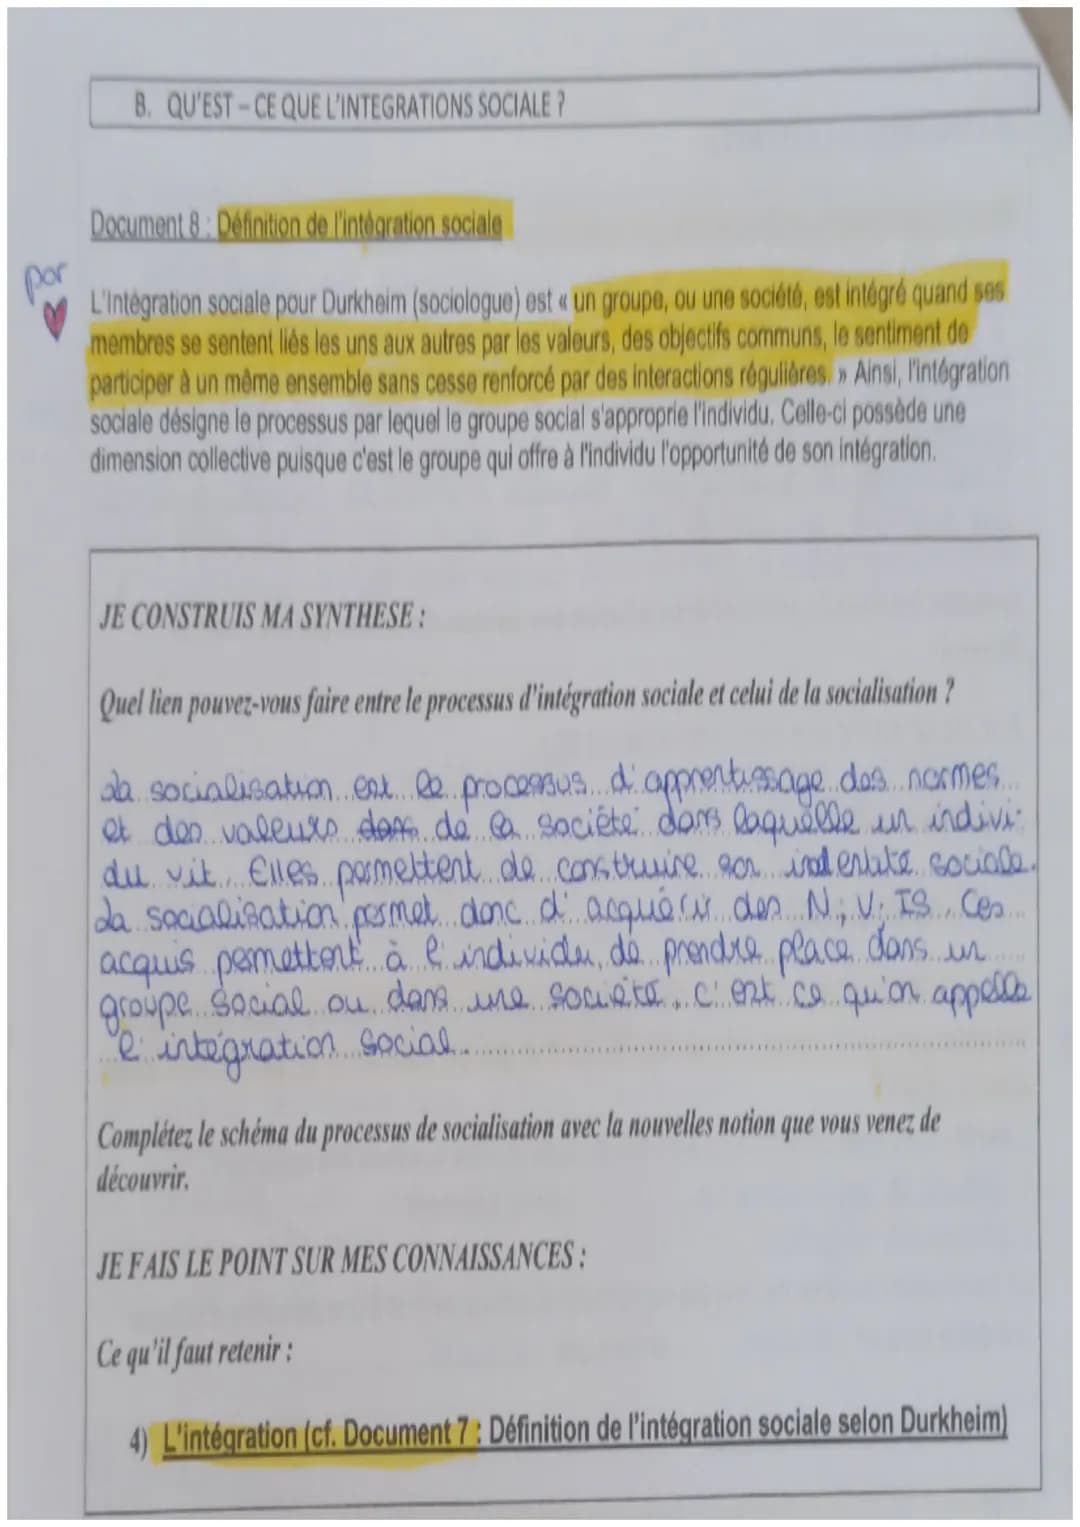 B. QU'EST – CE QUE L'INTEGRATIONS SOCIALE ?
Document 8 : Définition de l'intégration sociale
par
L'Intégration sociale pour Durkheim (sociologue) est « un groupe, ou une société, est intégré quand ses
membres se sentent liés les uns aux autres par les valeurs, des objectifs communs, le sentiment de
participer à un même ensemble sans cesse renforcé par des interactions régulières. » Ainsi, l'intégration
sociale désigne le processus par lequel le groupe social s'approprie l'individu. Celle-ci possède une
dimension collective puisque c'est le groupe qui offre à l'individu l'opportunité de son intégration.
JE CONSTRUIS MA SYNTHESE :
Quel lien pouvez-vous faire entre le processus d'intégration sociale et celui de la socialisation ?
La socialisation est le processus d'apprentissage des normes
et des valeurs dans de la société dans laquelle un indivi-
du vit. Elles permettent de construire son indentité sociale.
La socialisation permet donc d'acquérir des N, V, IS. Ces
acquis permettent à l'individu de prendre place dans un
groupe social ou dans une société, c'est ce qu'on appelle
l'intégration social.
Complétez le schéma du processus de socialisation avec la nouvelles notion que vous venez de
découvrir.
JE FAIS LE POINT SUR MES CONNAISSANCES :
Ce qu'il faut retenir :
4) L'intégration (cf. Document 7 : Définition de l'intégration sociale selon Durkheim)